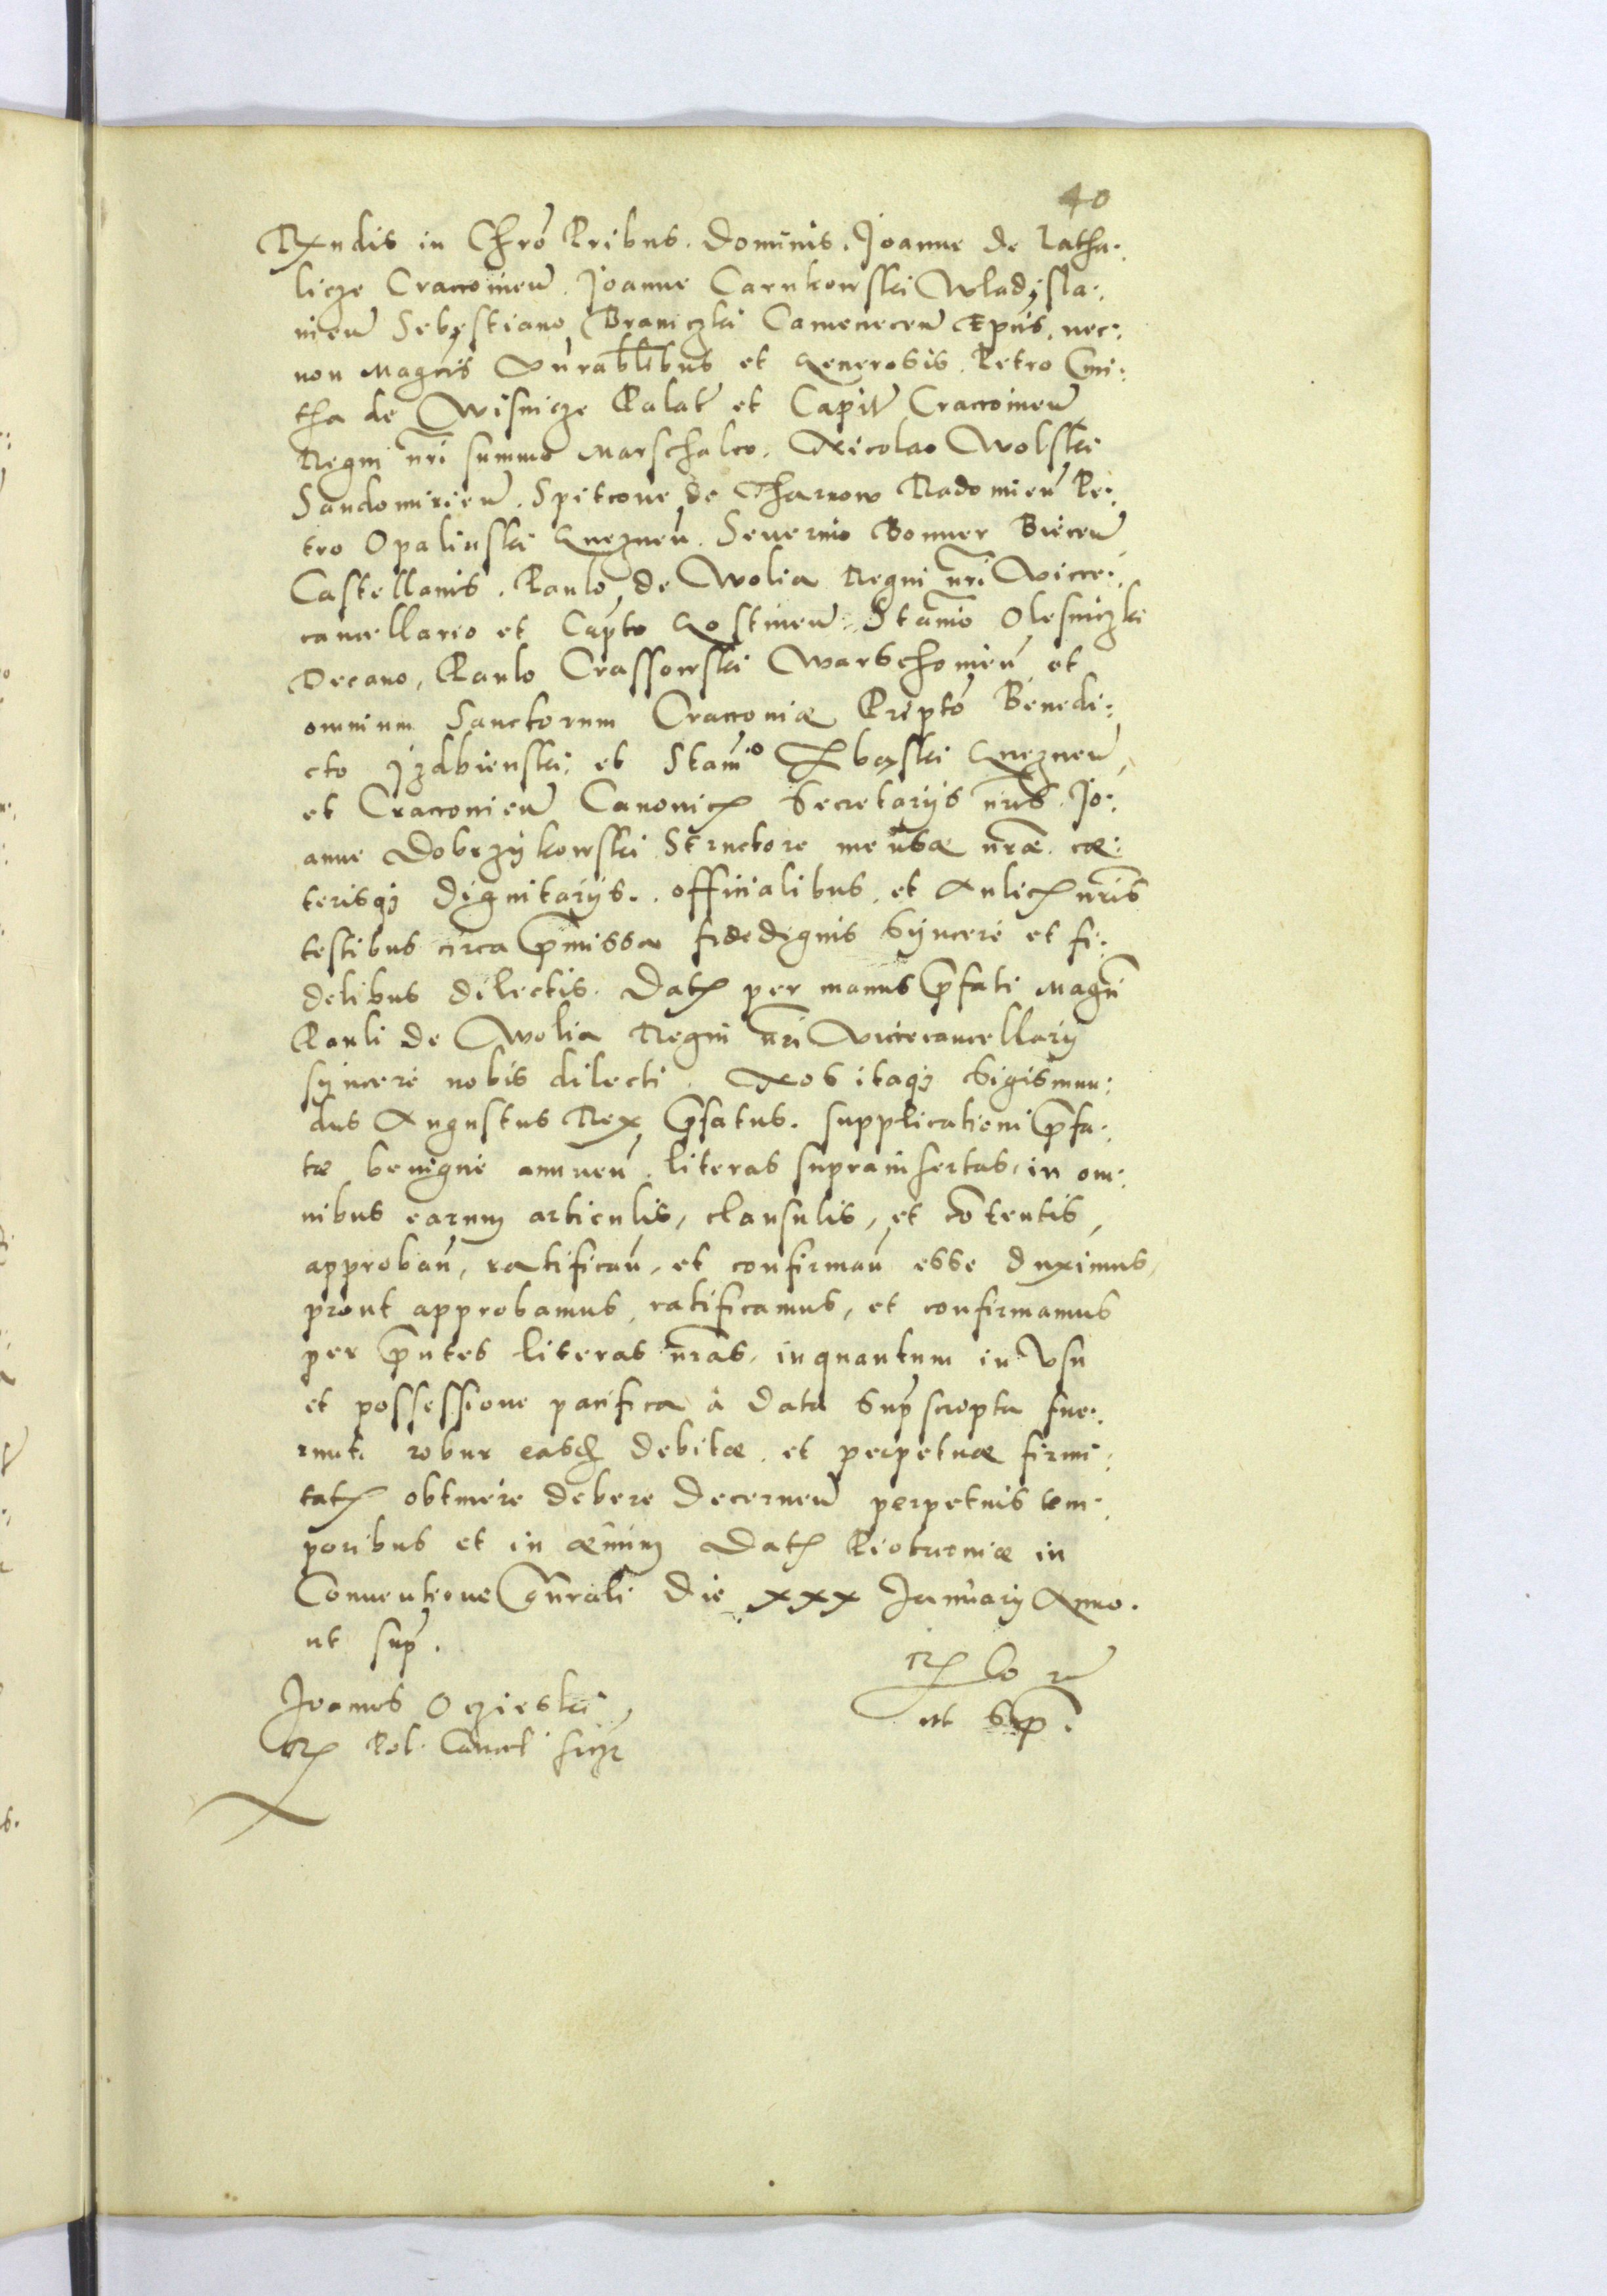 40
Rxndis in Chro Pribus. Dominis. Joanne de Latha:
licze Cracovień. Joanne Carnkowski Wladisla:
vień Sebestiano Braniczki Camenecen Epis. nec:
non Magcis Venrabilibus et Generosis. Petro Cmi:
tha de Wisnicze Palat et Capit Cracovień
Regni nri summo Marschalco. Nicolao Wolski
Sandomirień. Spitcone de Tharnow Radomień Pe:
tro Opalinski Gneznen. Severino Bonner Biecen
Castellanis. Paulo de Wolia Regni nri Vice:
cancellario et Capto Gostinen. Stanio Olesniczki
Decano, Paulo Crassowski Warschovien et
omnium Sanctorum Cracoviæ Prepto Benedi:
cto Jzdbienski et Stanio Gneznen
et Cracovien Canonic Secretarijs nris. Jo:
anne Dobrzijkowski Structore mensæ nræ. cæ:
terisq; Dignitarijs. officialibus. et Aulic nris
testibus circa pmissa fidedignis Sijnceré et fi:
delibus dilectis. Dat per manus pfati Magci
Pauli de Wolia Regni nri Vicecancellarij
sijnceré nobis dilecti. Nos itaq; Sigismun:
dus Augustus Rex pfatus. supplicationi pfa:
tæ benigné annuen. literas suprainsertas, in om:
nibus earum articulis, clausulis, et cotentis,
approban, ratifican, et confirman esse duximus,
prout approbamus, ratificamus, et confirmamus
per pntes literas nras, inquantum in Vsu
et possessione pacifica á data supscripta fue:
runt. robur easq debitæ. et perpetuæ firmi:
tat obtinére debere Decernen perpetuis tem:
poribus et in ævum Dat Piotrcoviæ in
Conventione Gnrali Die xxx Januarij Anno.
ut sup.
ut sup.
Joannes Oczieski
R Pol. Cancel